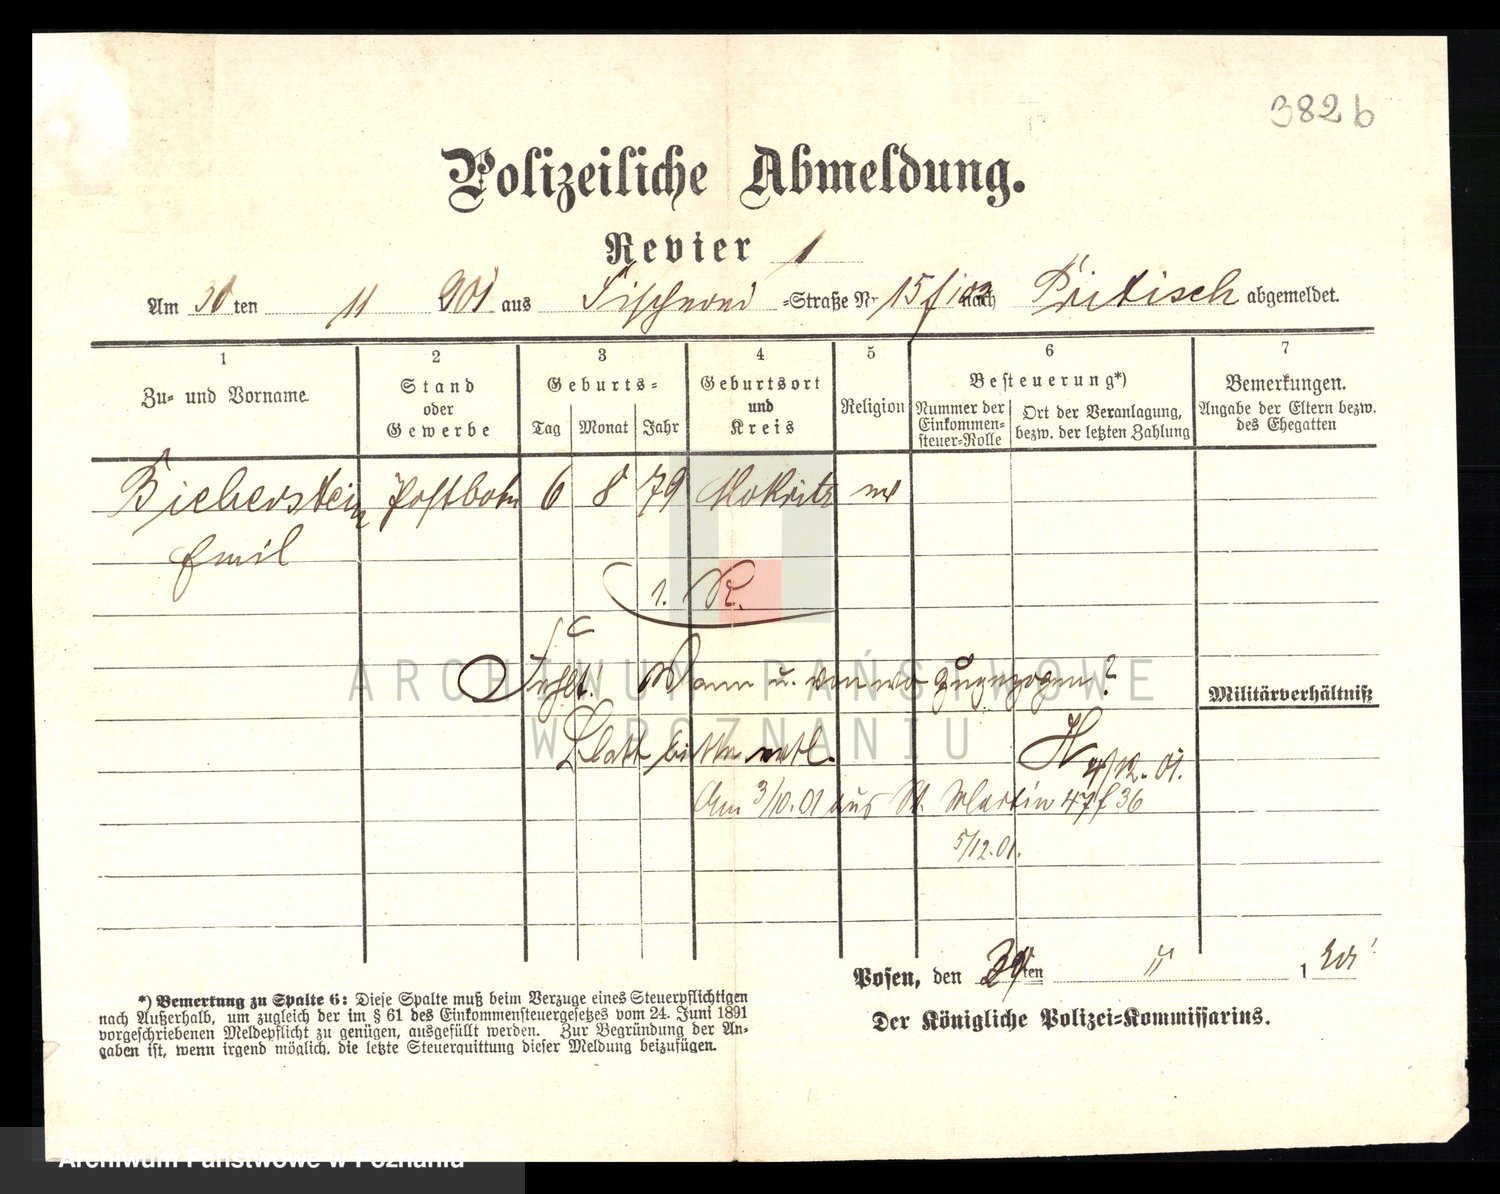 382 b
Polizeiliche Abmeldung.
Revier 1
Am 30 ten 11 901 aus Fischerei =Straße Nr 15 f nach Pritisch abgemeldet.
1 2 3 4 5 6 7
Zu= und Vorname. Stand oder Gewerbe Geburts= Tag Monat Jahr Geburtsort und Kreis Religion Besteuerung*) Nummer der Einkommen=steuer=Rolle Ort der Veranlagung, bezw. der letzten Zahlung Bemerkungen. Angabe der Eltern bezw. des Ehegatten
Bieberstein Postbote 6 8 79 Mokritz
Emil
1. R.
Fehlt. Wann u. von wo zugezogen?
Militärverhältniß
Blatt bitte
4/12. 01.
Am 3/10. 01 aus St. Martin 47 f 36
5/12. 01.
Posen, den ten 11 1901
Der Königliche Polizei=Kommissarius.
*) Bemerkung zu Spalte 6: Diese Spalte muß beim Verzuge eines Steuerpflichtigen
nach Außerhalb, um zugleich der im § 61 des Einkommensteuergesetzes vom 24. Juni 1891
vorgeschriebenen Meldepflicht zu genügen, ausgefüllt werden. Zur Begründung der An=
gaben ist, wenn irgend möglich, die letzte Steuerquittung dieser Meldung beizufügen.
ARCHIWUM PAŃSTWOWE
W POZNANIU
Archiwum Państwowe w Poznaniu